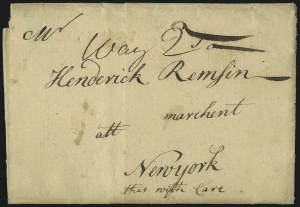 Mr
Way Esq
Henderick Remsin
marchent
att
Newyork
this with Care